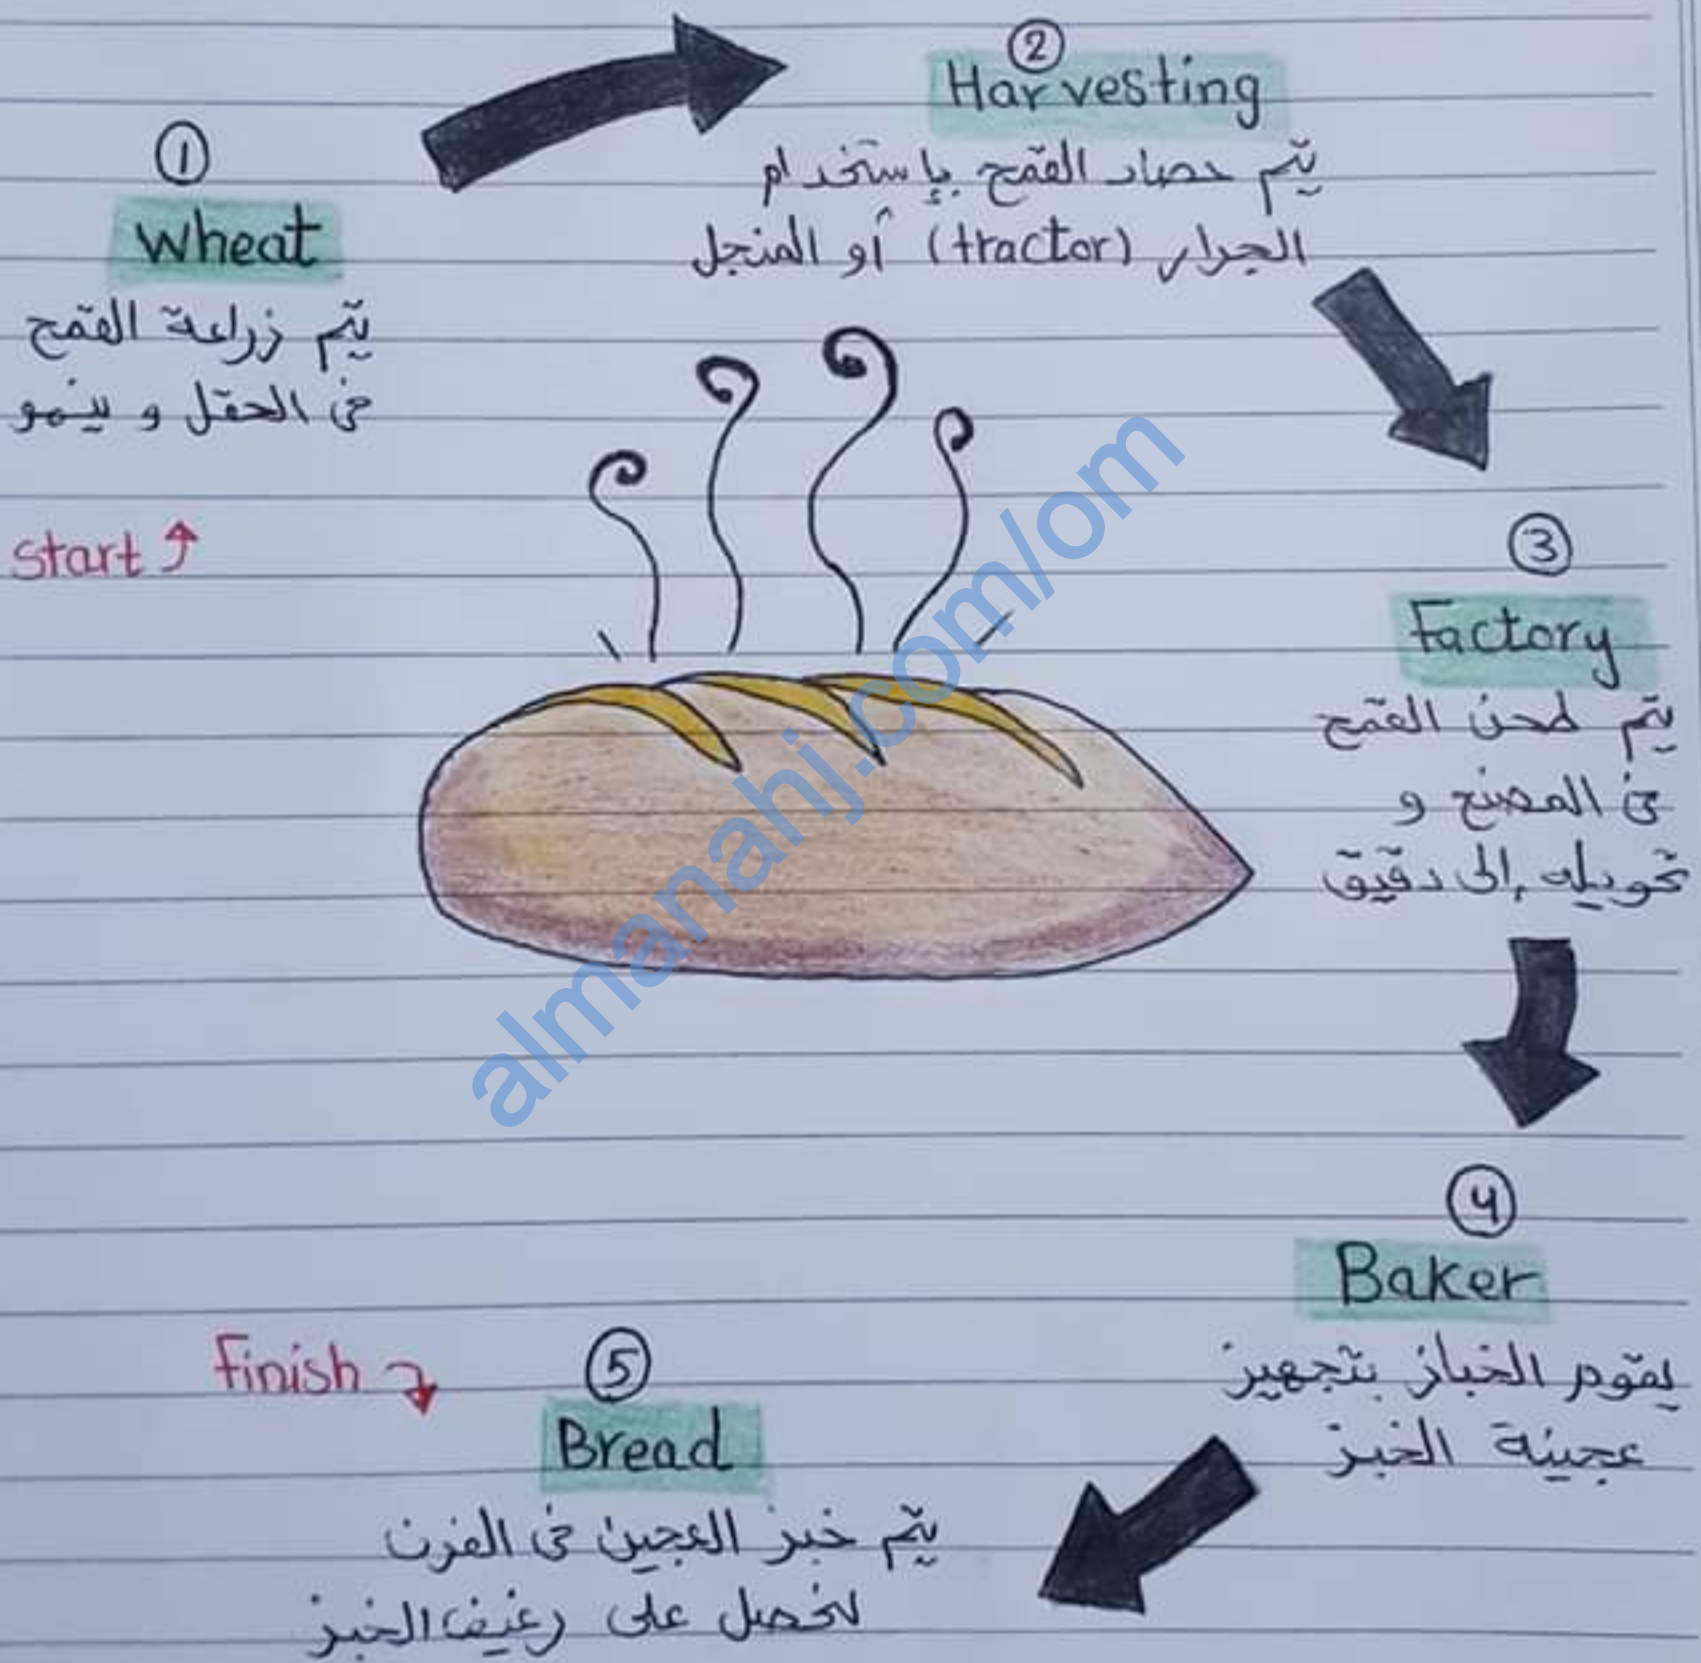 ①
Wheat
يتم زراعة القمح
فى الحقل و ينمو
start
②
Harvesting
يتم حصاد القمح بإستخدام
الجرار (tractor) أو المنجل
③
Factory
يتم طحن القمح
فى المصنع و
تحويله إلى دقيق
④
Baker
يقوم الخباز بتجهيز
عجينة الخبز
Finish
⑤
Bread
يتم خبز العجين فى الفرن
لنحصل على رغيف الخبز
almanahj.com/om